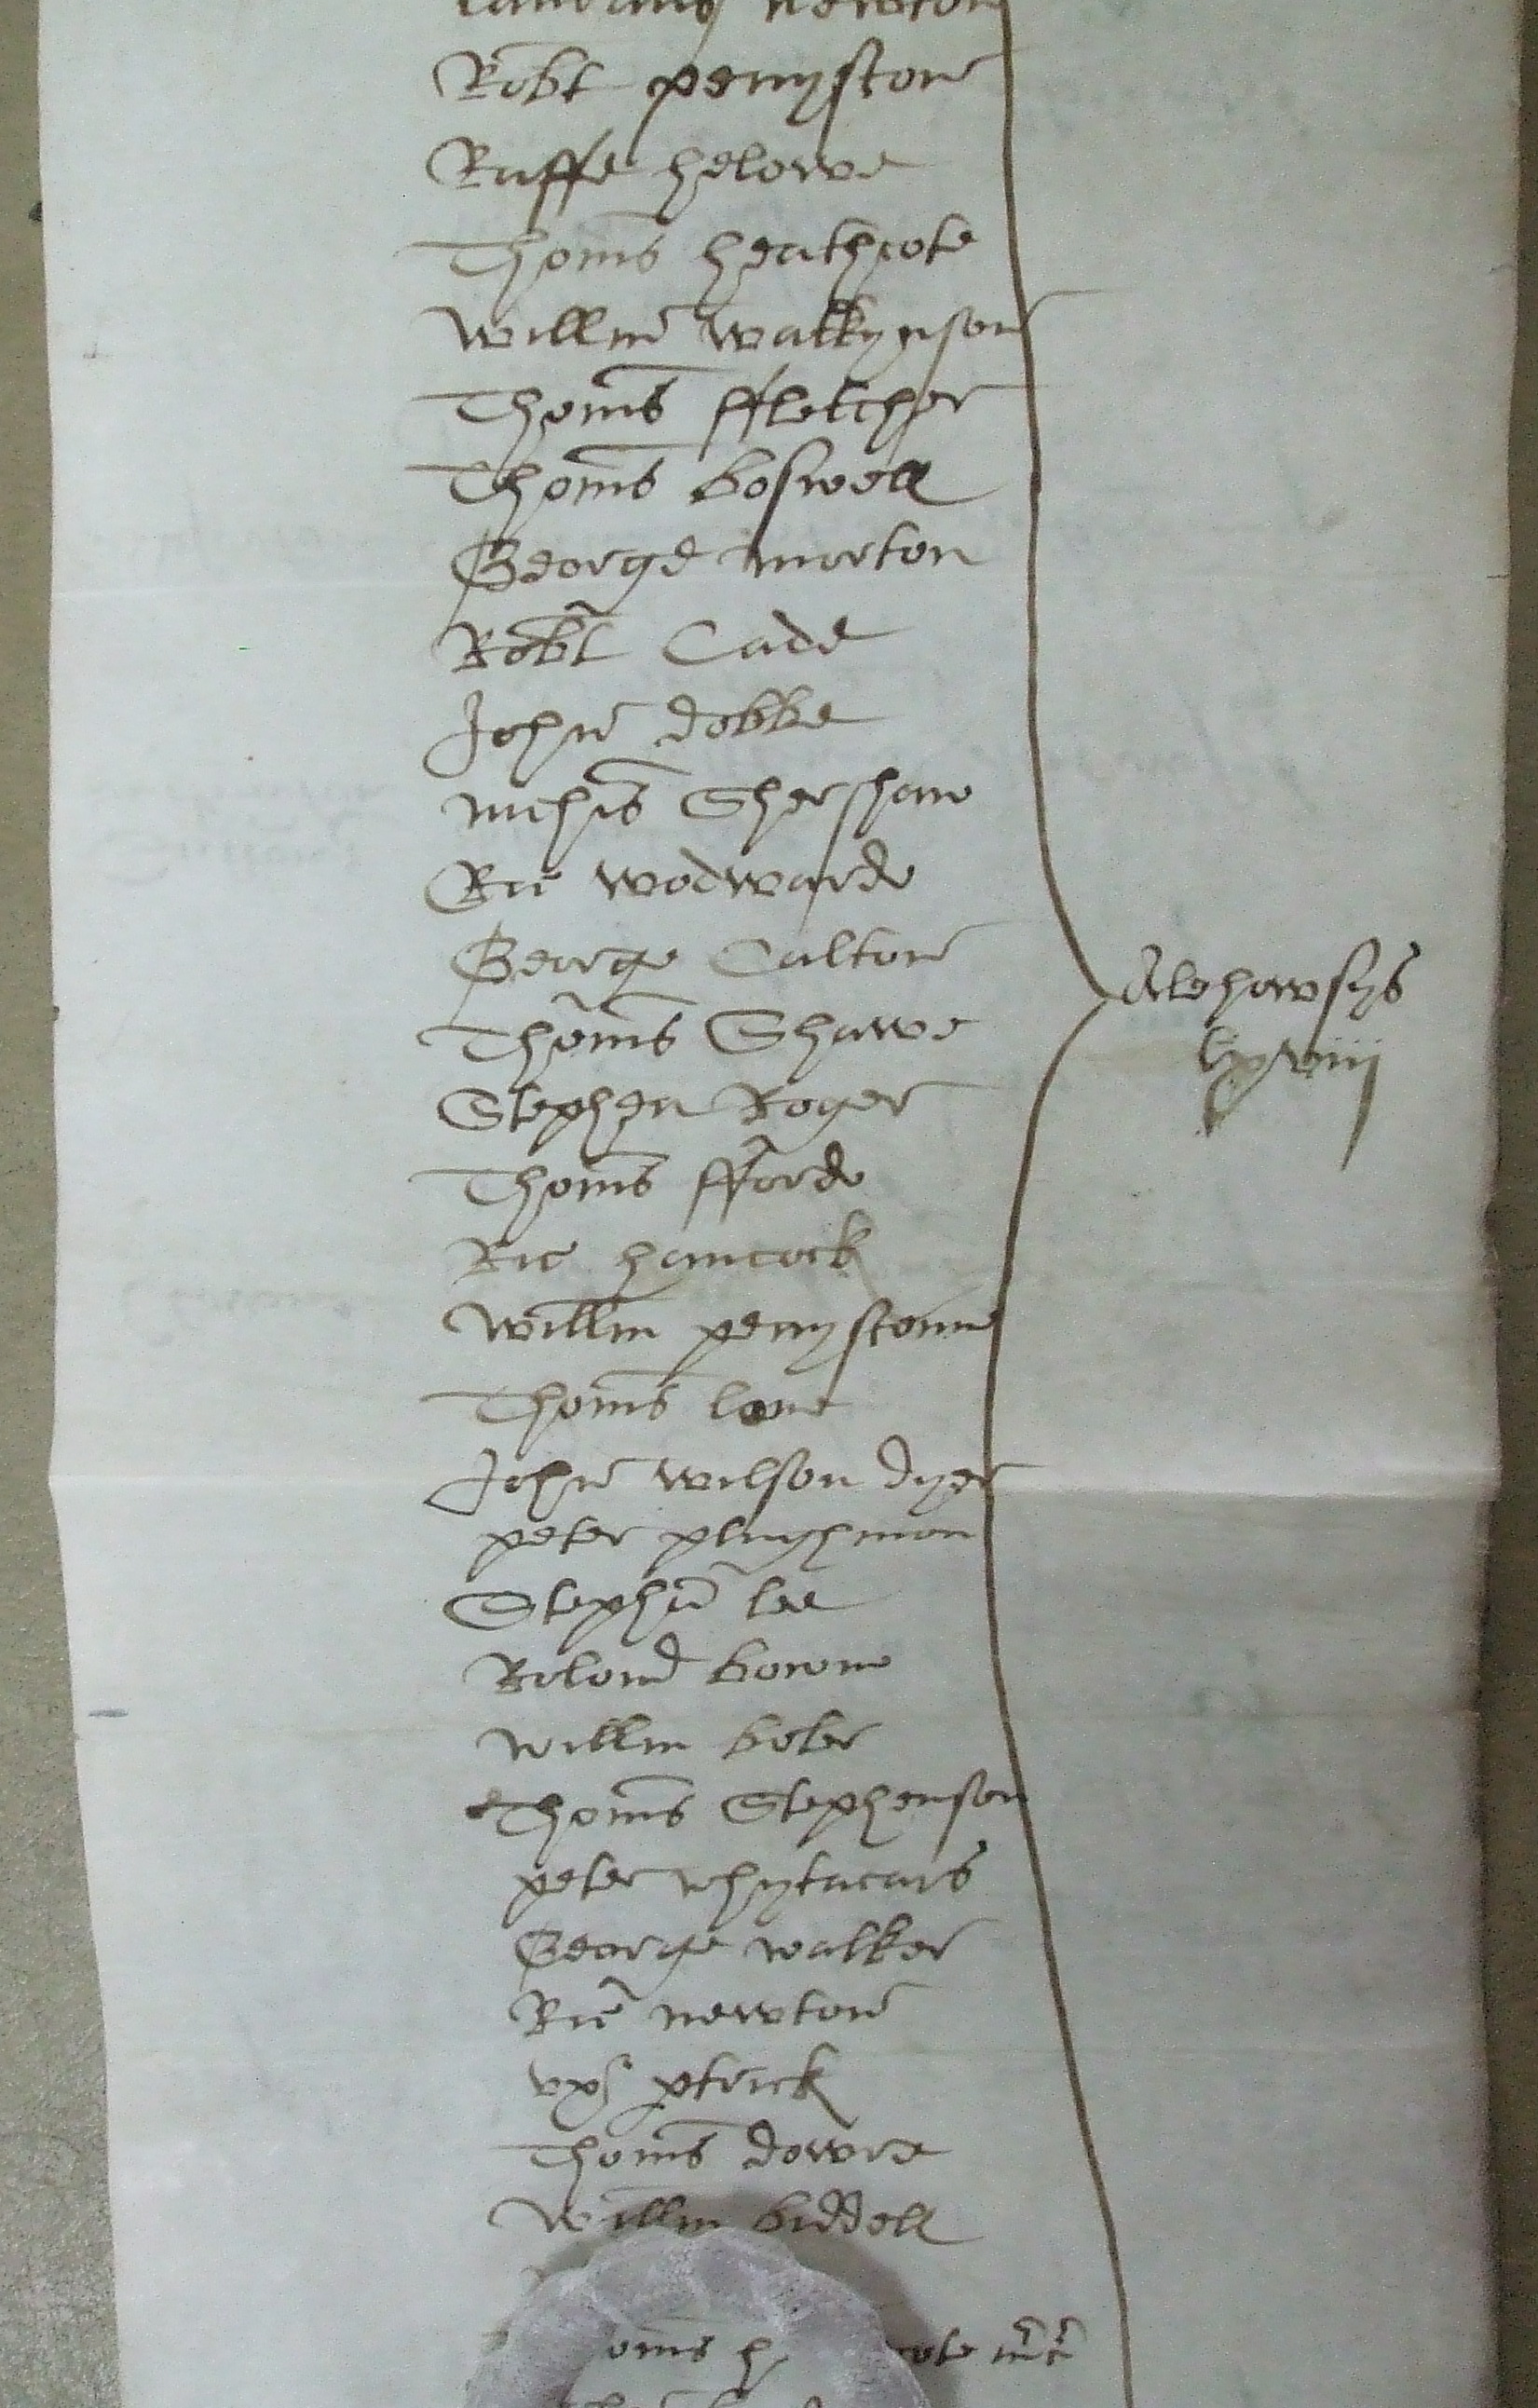 newton
Robt penyston
Raffe helowe
Thoms heathcote
Willm watkynson
Thoms ffletcher
Thoms boswell
George morton
Robt Cade
John dobbe
nichis Shershaw
Ric wodwarde
George Calton
Thoms Shawe
Stephen Roger
Thoms fforde
Ric hancock
Willm penystonne
Thoms lane
John wilson dyer
peter plughman
Stephn lee
Roland bowne
willm boler
Thoms Stephenson
peter whytacars
George walker
Ric newton
vx ptrick
Thoms dowre
Willm biddell
oms h ote
Alehowsys
lxviij